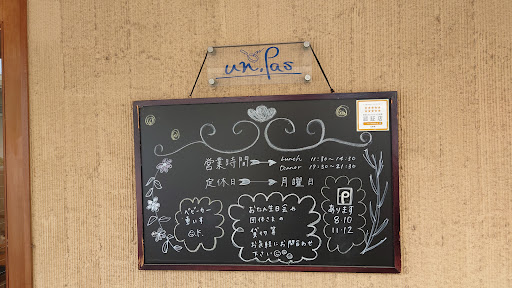 un.Pas
営業時間 Lunch 11:30~14:30
Dinner 17:30~21:30
定休日 月曜日
ベビーカー
車いす
O.K.
お誕生日会や
団体さまの
貸切等
お気軽にお問合わせ
下さい
P
あります
8.10
11.12